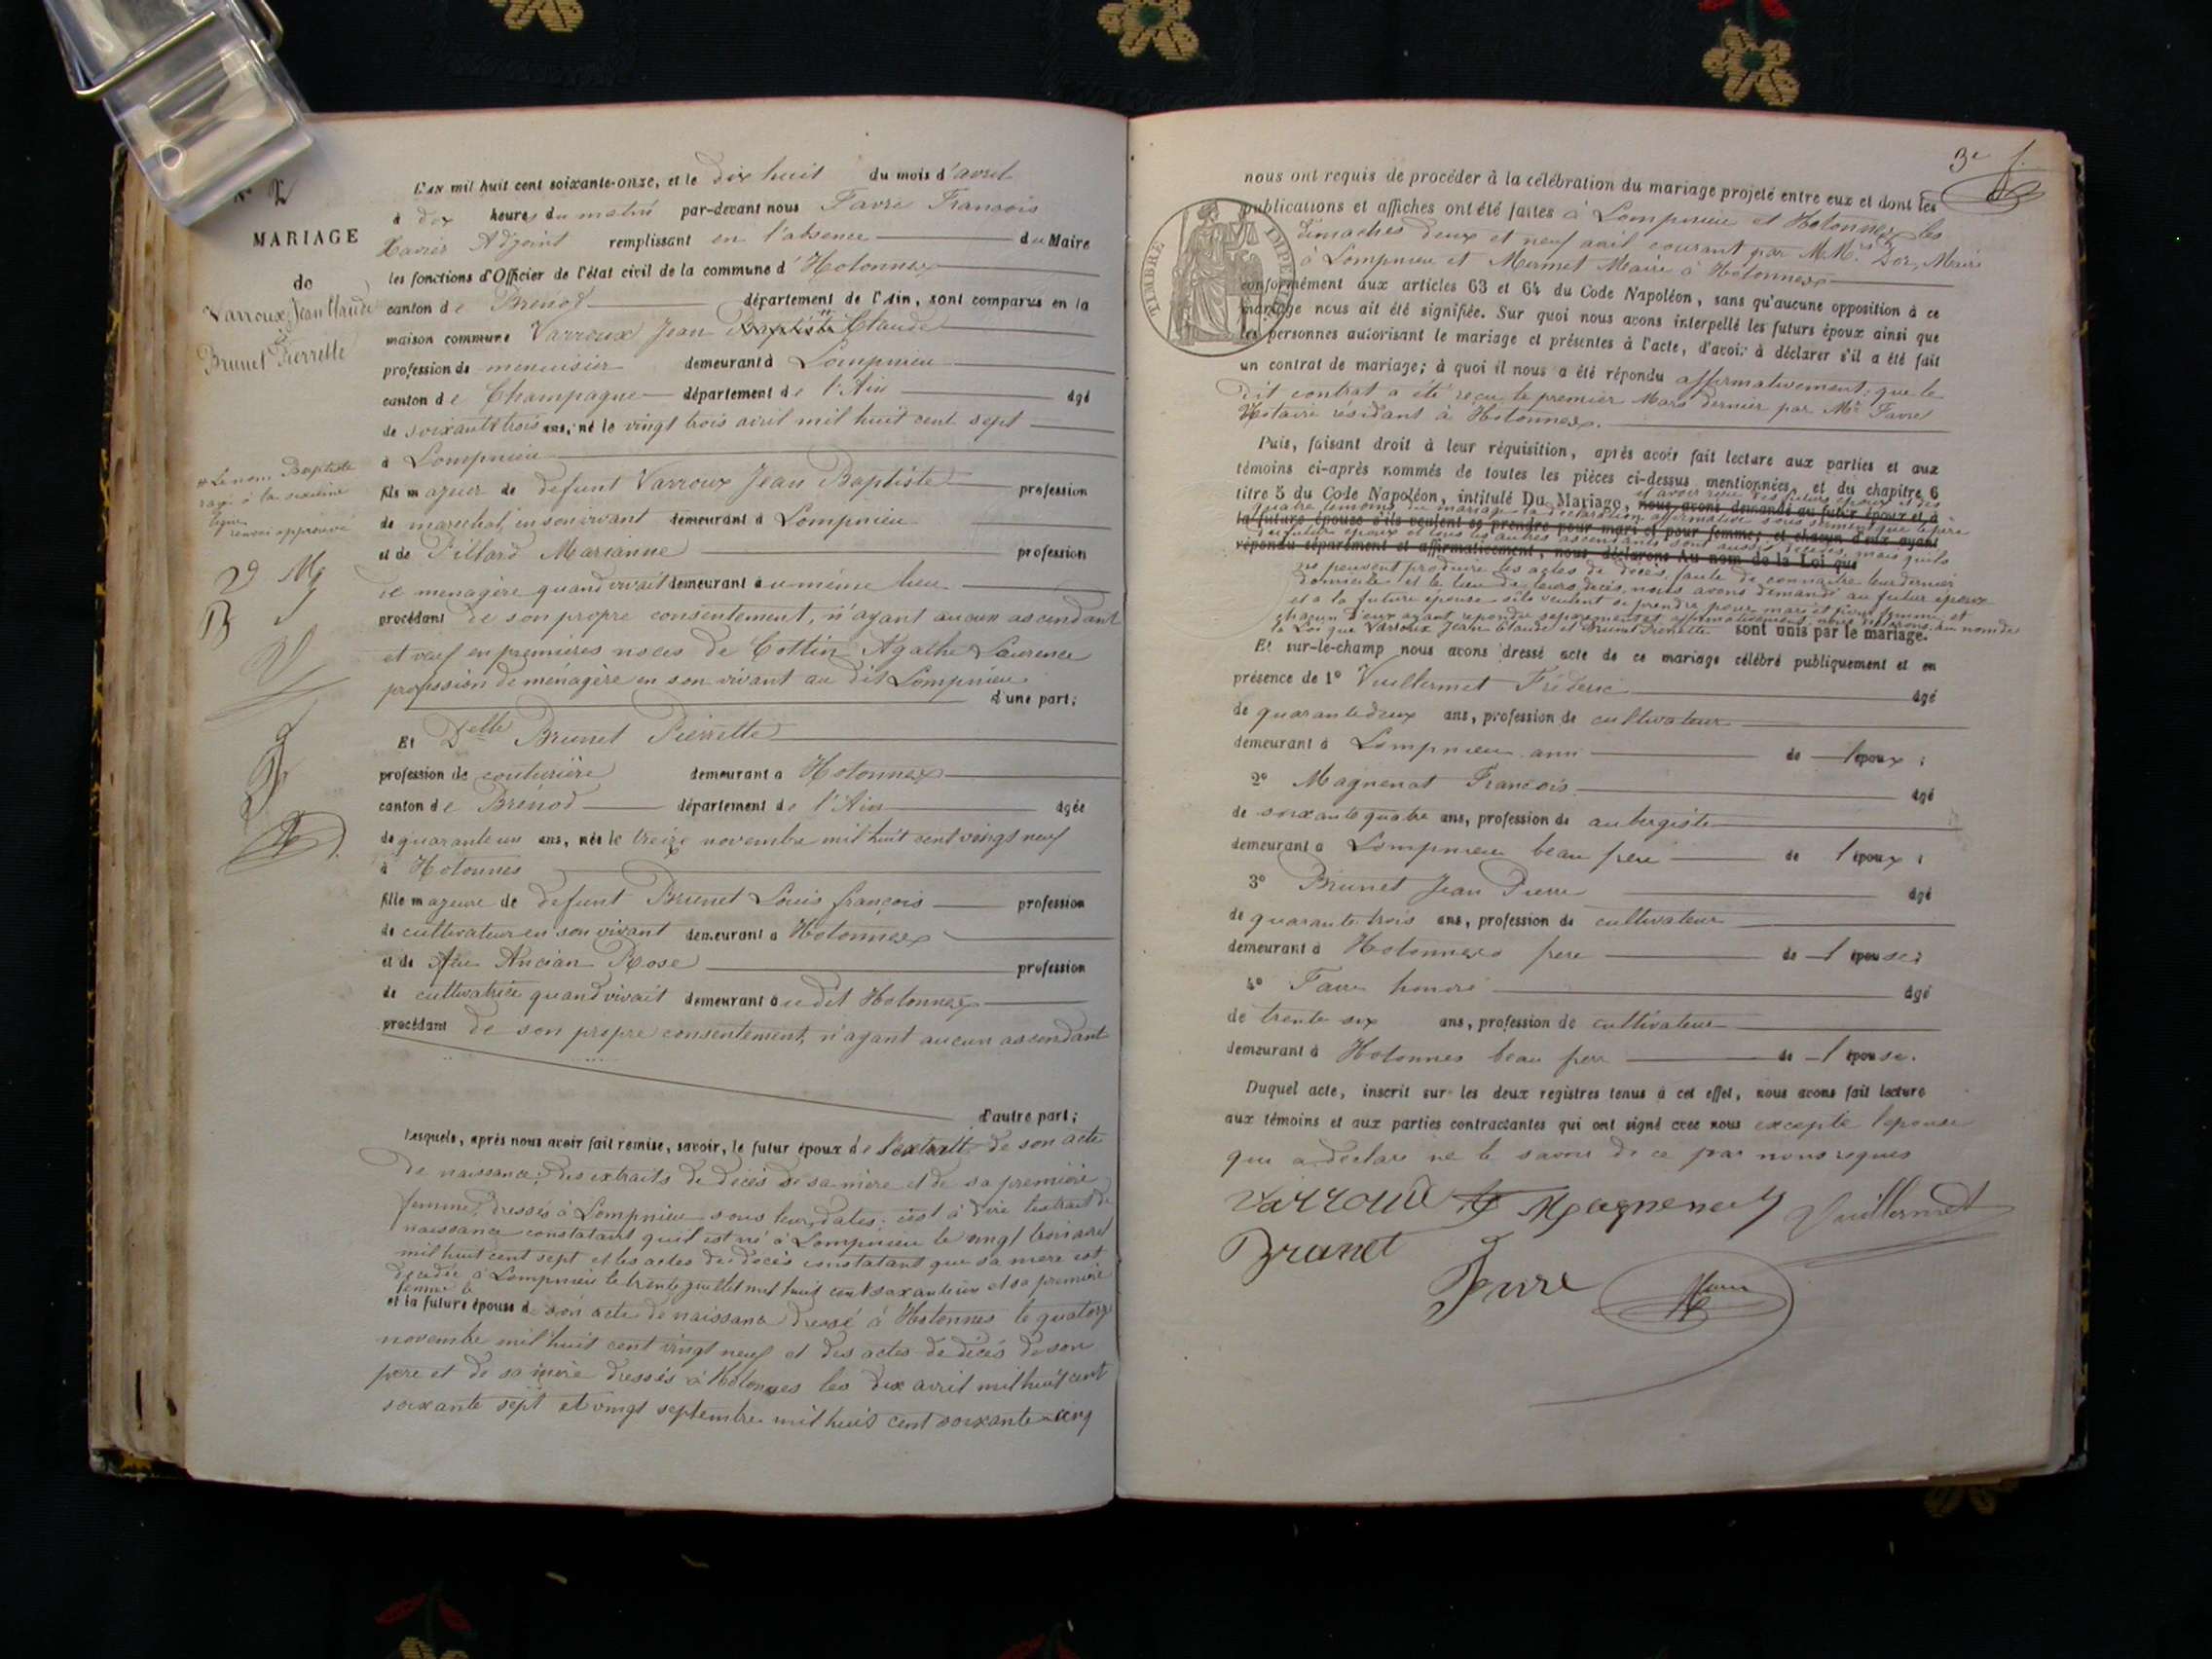 N° 2
MARIAGE
de
Varroux Jean Claude
à
Brunet Pierrette
L'an mil huit cent soixante-onze, et le dix huit du mois d'avril
à dix heures du matin par-devant nous Favre François
Xavier Adjoint remplissant en l'absence du Maire
les fonctions d'Officier de l'état civil de la commune d'Hotonnes
canton de Brénod département de l'Ain, sont comparus en la
maison commune Varroux Jean Baptiste Claude
profession de menuisier demeurant à Lompnieu
canton de Champagne département de l'Ain âgé
de soixante trois ans, né le vingt trois avril mil huit cent sept
à Lompnieu
* Le nom Baptiste
rayé à la sixième
ligne
renvoi approuvé
fils majeur de defunt Varroux Jean Baptiste profession
de maréchal, en son vivant demeurant à Lompnieu
et de Pillard Marianne profession
de menagère quand vivait demeurant au même lieu
procédant de son propre consentement, n'ayant aucun ascendant
et veuf en premières noces de Cottin Agathe Laurence
profession de ménagère en son vivant au dit Lompnieu
d'une part;
Et Delle Brunet Pierrette
profession de couturière demeurant à Hotonnes
canton de Brénod département de l'Ain âgée
de quarante un ans, née le treize novembre mil huit cent vingt neuf
à Hotonnes
fille majeure de defunt Brunet Louis françois profession
de cultivateur en son vivant demeurant à Hotonnes
et de feu Ancian Rose profession
de cultivatrice quand vivait demeurant au dit Hotonnes
procédant de son propre consentement, n'ayant aucun ascendant
d'autre part;
Lesquels, après nous avoir fait remise, savoir, le futur époux de l'extrait de son acte
de naissance, des extraits de décès de sa mère et de sa première
femme, dressés à Lompnieu sous leurs dates; c'est à dire l'extrait de
naissance constatant qu'il est né à Lompnieu le vingt trois avril
mil huit cent sept et les actes de décès constatant que sa mère est
décédée à Lompnieu le trente juillet mil huit cent soixante un et sa première
femme le
et la future épouse de son acte de naissance dressé à Hotonnes le quatorze
novembre mil huit cent vingt neuf et des actes de décès de son
père et de sa mère dressés à Hotonnes les dix avril mil huit cent
soixante sept et vingt septembre mil huit cent soixante cinq
3e f.
nous ont requis de procéder à la célébration du mariage projeté entre eux et dont les
publications et affiches ont été faites à Lompnieu et Hotonnes les
dimanches deux et neuf avril courant par MM. Dor, Maire
à Lompnieu et Mermet Maire à Hotonnes
TIMBRE IMPERIAL
conformément aux articles 63 et 64 du Code Napoléon, sans qu'aucune opposition à ce
mariage nous ait été signifiée. Sur quoi nous avons interpellé les futurs époux ainsi que
les personnes autorisant le mariage et présentes à l'acte, d'avoir à déclarer s'il a été fait
un contrat de mariage; à quoi il nous a été répondu affirmativement; que le
dit contrat a été reçu le premier Mars dernier par Me Favre
Notaire résidant à Hotonnes.
Puis, faisant droit à leur réquisition, après avoir fait lecture aux parties et aux
témoins ci-après nommés de toutes les pièces ci-dessus mentionnées, et du chapitre 6
titre 5 du Code Napoléon, intitulé Du Mariage, nous avons demandé au futur époux et à
et avoir reçu des futurs époux et des
quatre temoins du mariage la déclaration affirmative sous serment que le père
la future épouse s'ils veulent se prendre pour mari et pour femme; et chacun d'eux ayant
du futur époux et tous les autres ascendants sont aussi décédés, mais qu'ils
répondu séparément et affirmativement, nous déclarons Au nom de la Loi que
ne peuvent produire les actes de décès, faute de connaître leur dernier
domicile et le lieu de leurs décès, nous avons demandé au futur époux
et à la future épouse s'ils veulent se prendre pour mari et pour femme, et
chacun d'eux ayant repondu separement et affirmativement nous déclarons Au nom de
la Loi que Varroux Jean Claude et Brunet Pierrette sont unis par le mariage.
Et sur-le-champ nous avons dressé acte de ce mariage célébré publiquement et en
présence de 1° Vuillermet Fréderic âgé
de quarante deux ans, profession de cultivateur
demeurant à Lompnieu ami de l'époux;
2° Magnenat François âgé
de soixante quatre ans, profession de aubergiste
demeurant à Lompnieu beau frere de l'époux;
3° Brunet Jean Pierre âgé
de quarante trois ans, profession de cultivateur
demeurant à Hotonnes frere de l'épouse;
4° Favre honoré âgé
de trente six ans, profession de cultivateur
demeurant à Hotonnes beau frere de l'épouse.
Duquel acte, inscrit sur les deux registres tenus à cet effet, nous avons fait lecture
aux témoins et aux parties contractantes qui ont signé avec nous excepté l'épouse
qui a déclaré ne le savoir de ce par nous requis
Varroux Magnenat Vuillermet
Brunet
Favre